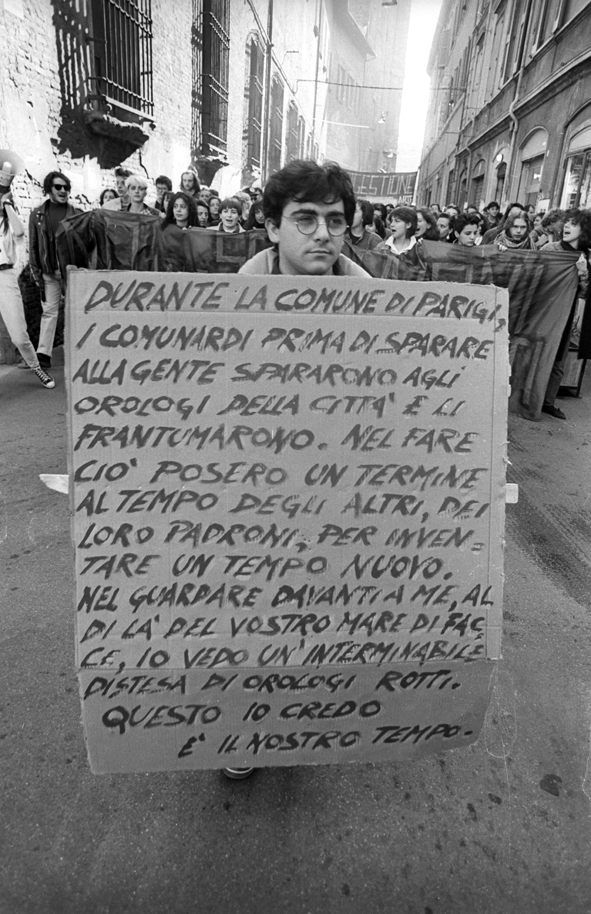 GESTIONE
DURANTE LA COMUNE DI PARIGI,
I COMUNARDI PRIMA DI SPARARE
ALLA GENTE SPARARONO AGLI
OROLOGI DELLA CITTA' E LI
FRANTUMARONO. NEL FARE
CIO' POSERO UN TERMINE
AL TEMPO DEGLI ALTRI, DEI
LORO PADRONI, PER INVEN=
TARE UN TEMPO NUOVO.
NEL GUARDARE DAVANTI A ME, AL
DI LA' DEL VOSTRO MARE DI FAC
CE, IO VEDO UN' INTERMINABILE
DISTESA DI OROLOGI ROTTI.
QUESTO IO CREDO
E' IL NOSTRO TEMPO.